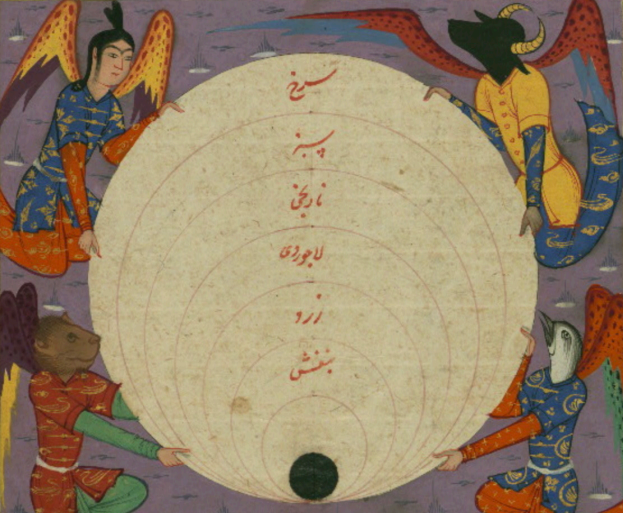 سرخ
سبز
نارنجی
لاجوردی
زرد
بنفش